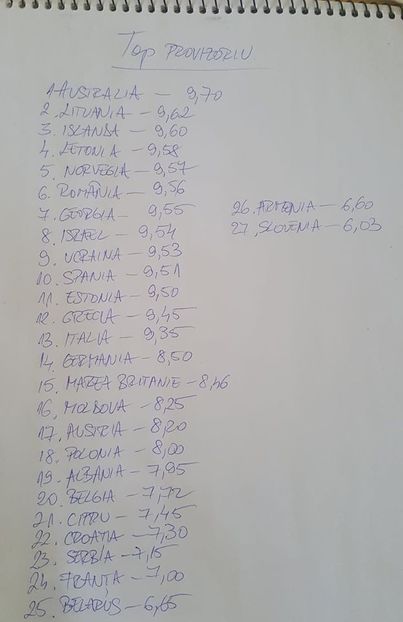 Top PROVIZORIU
1. AUSTRALIA — 9,70
2. LITUANIA — 9,62
3. ISLANDA — 9,60
4. LETONIA — 9,58
5. NORVEGIA — 9,57
6. ROMÂNIA — 9,56
7. GEORGIA — 9,55
8. ISRAEL — 9,54
9. UCRAINA — 9,53
10. SPANIA — 9,51
11. ESTONIA — 9,50
12. GRECIA — 9,45
13. ITALIA — 9,35
14. GERMANIA — 8,50
15. MAREA BRITANIE — 8,46
16. MOLDOVA — 8,25
17. AUSTRIA — 8,20
18. POLONIA — 8,00
19. ALBANIA — 7,95
20. BELGIA — 7,72
21. CIPRU — 7,45
22. CROATIA — 7,30
23. SERBIA — 7,15
24. FRANȚA — 7,00
25. BELARUS — 6,65
26. ARMENIA — 6,60
27. SLOVENIA — 6,03